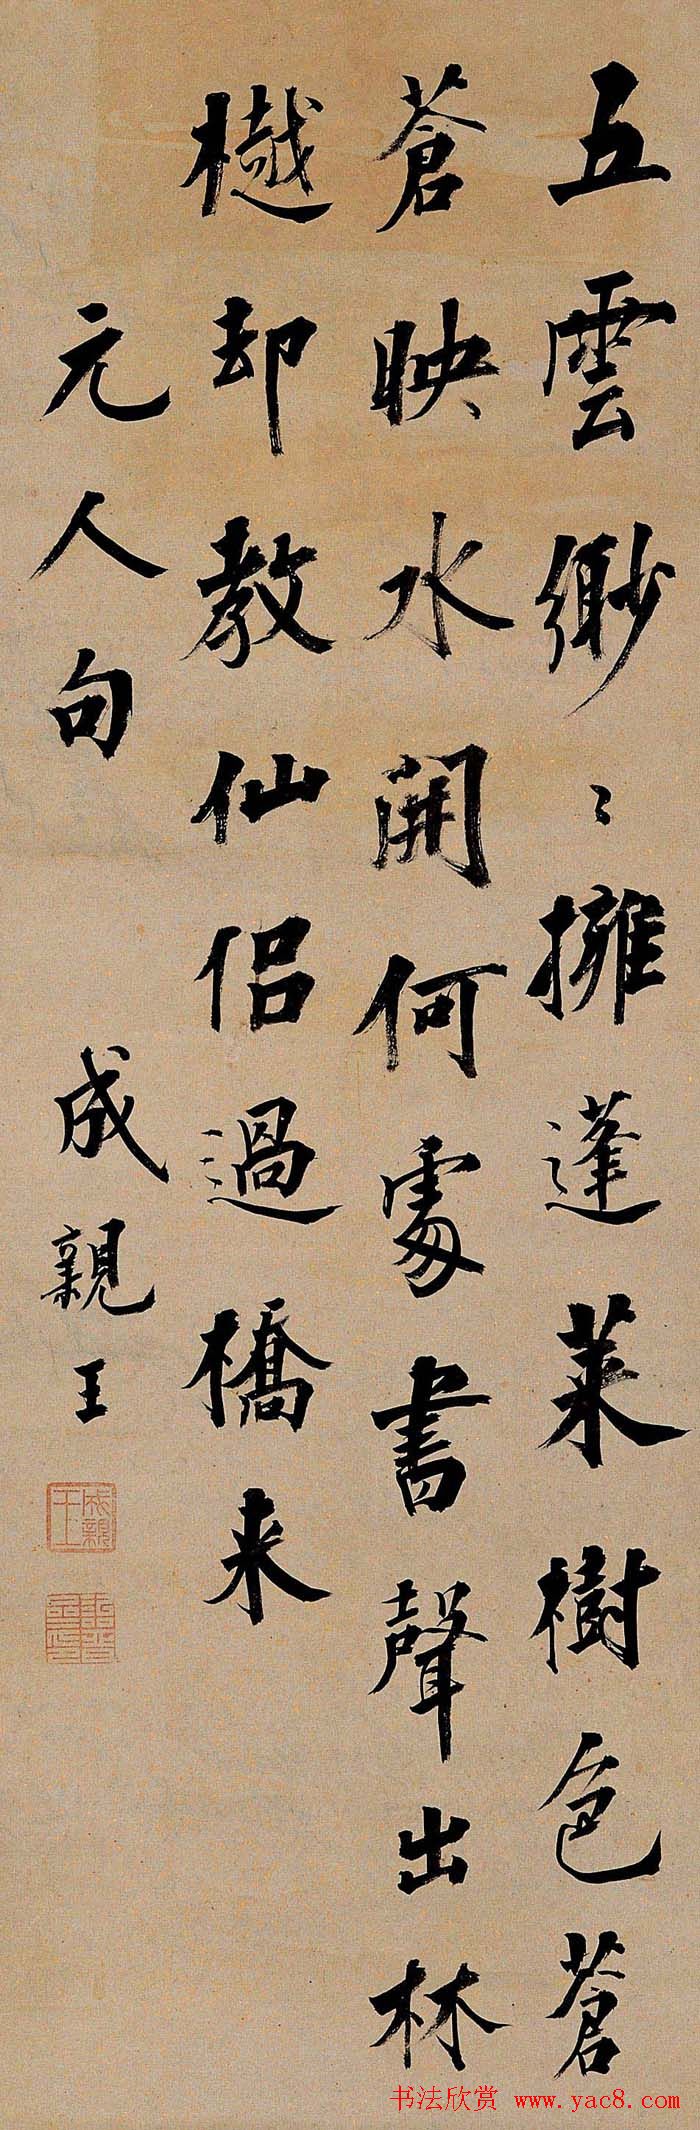 五雲緲〻擁蓬萊樹色蒼
蒼映水開何處書聲出林
樾却教仙侣過橋来
元人句
成親王
成親王
书法欣赏 www.yac8.com